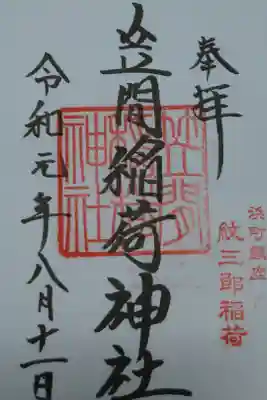 奉拝
浜町鎮座
紋三郎稲荷
笠間稲荷神社
笠間稲荷神社
令和元年八月十一日